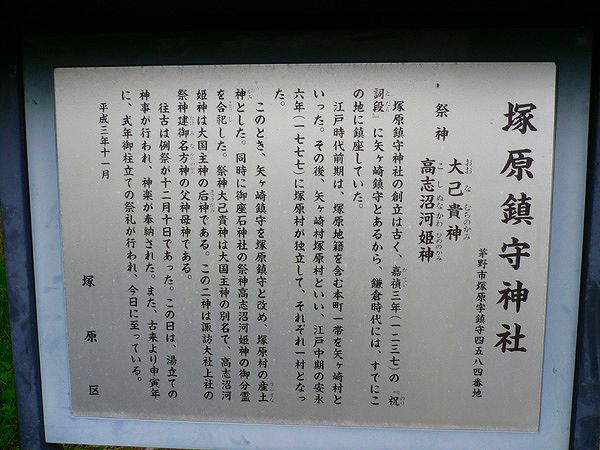 塚原鎮守神社
茅野市塚原字鎮守四五八四番地
祭神　大己貴神
高志沼河姫神
塚原鎮守神社の創立は古く、嘉禎三年（一二三七）の『祝
詞段』に矢ヶ崎鎮守とあるから、鎌倉時代には、すでにこ
の地に鎮座していた。
江戸時代前期は、塚原地籍を含む本町一帯を矢ヶ崎村と
いった。その後、矢ヶ崎村塚原村といい、江戸中期の安永
六年（一七七七）に塚原村が独立して、それぞれ一村となっ
た。
このとき、矢ヶ崎鎮守を塚原鎮守と改め、塚原村の産土
神とした。同時に御座石神社の祭神高志沼河姫神の御分霊
を合祀した。祭神大己貴神は大国主神の別名で、高志沼河
姫神は大国主神の后神である。この二神は諏訪大社上社の
祭神建御名方神の父神母神である。
往古は例祭が十二月十日であった。この日は、湯立ての
神事が行われ、神楽が奉納された。また、古来より申寅年
に、式年御柱立ての祭礼が行われ、今日に至っている。
平成三年十一月
塚原区